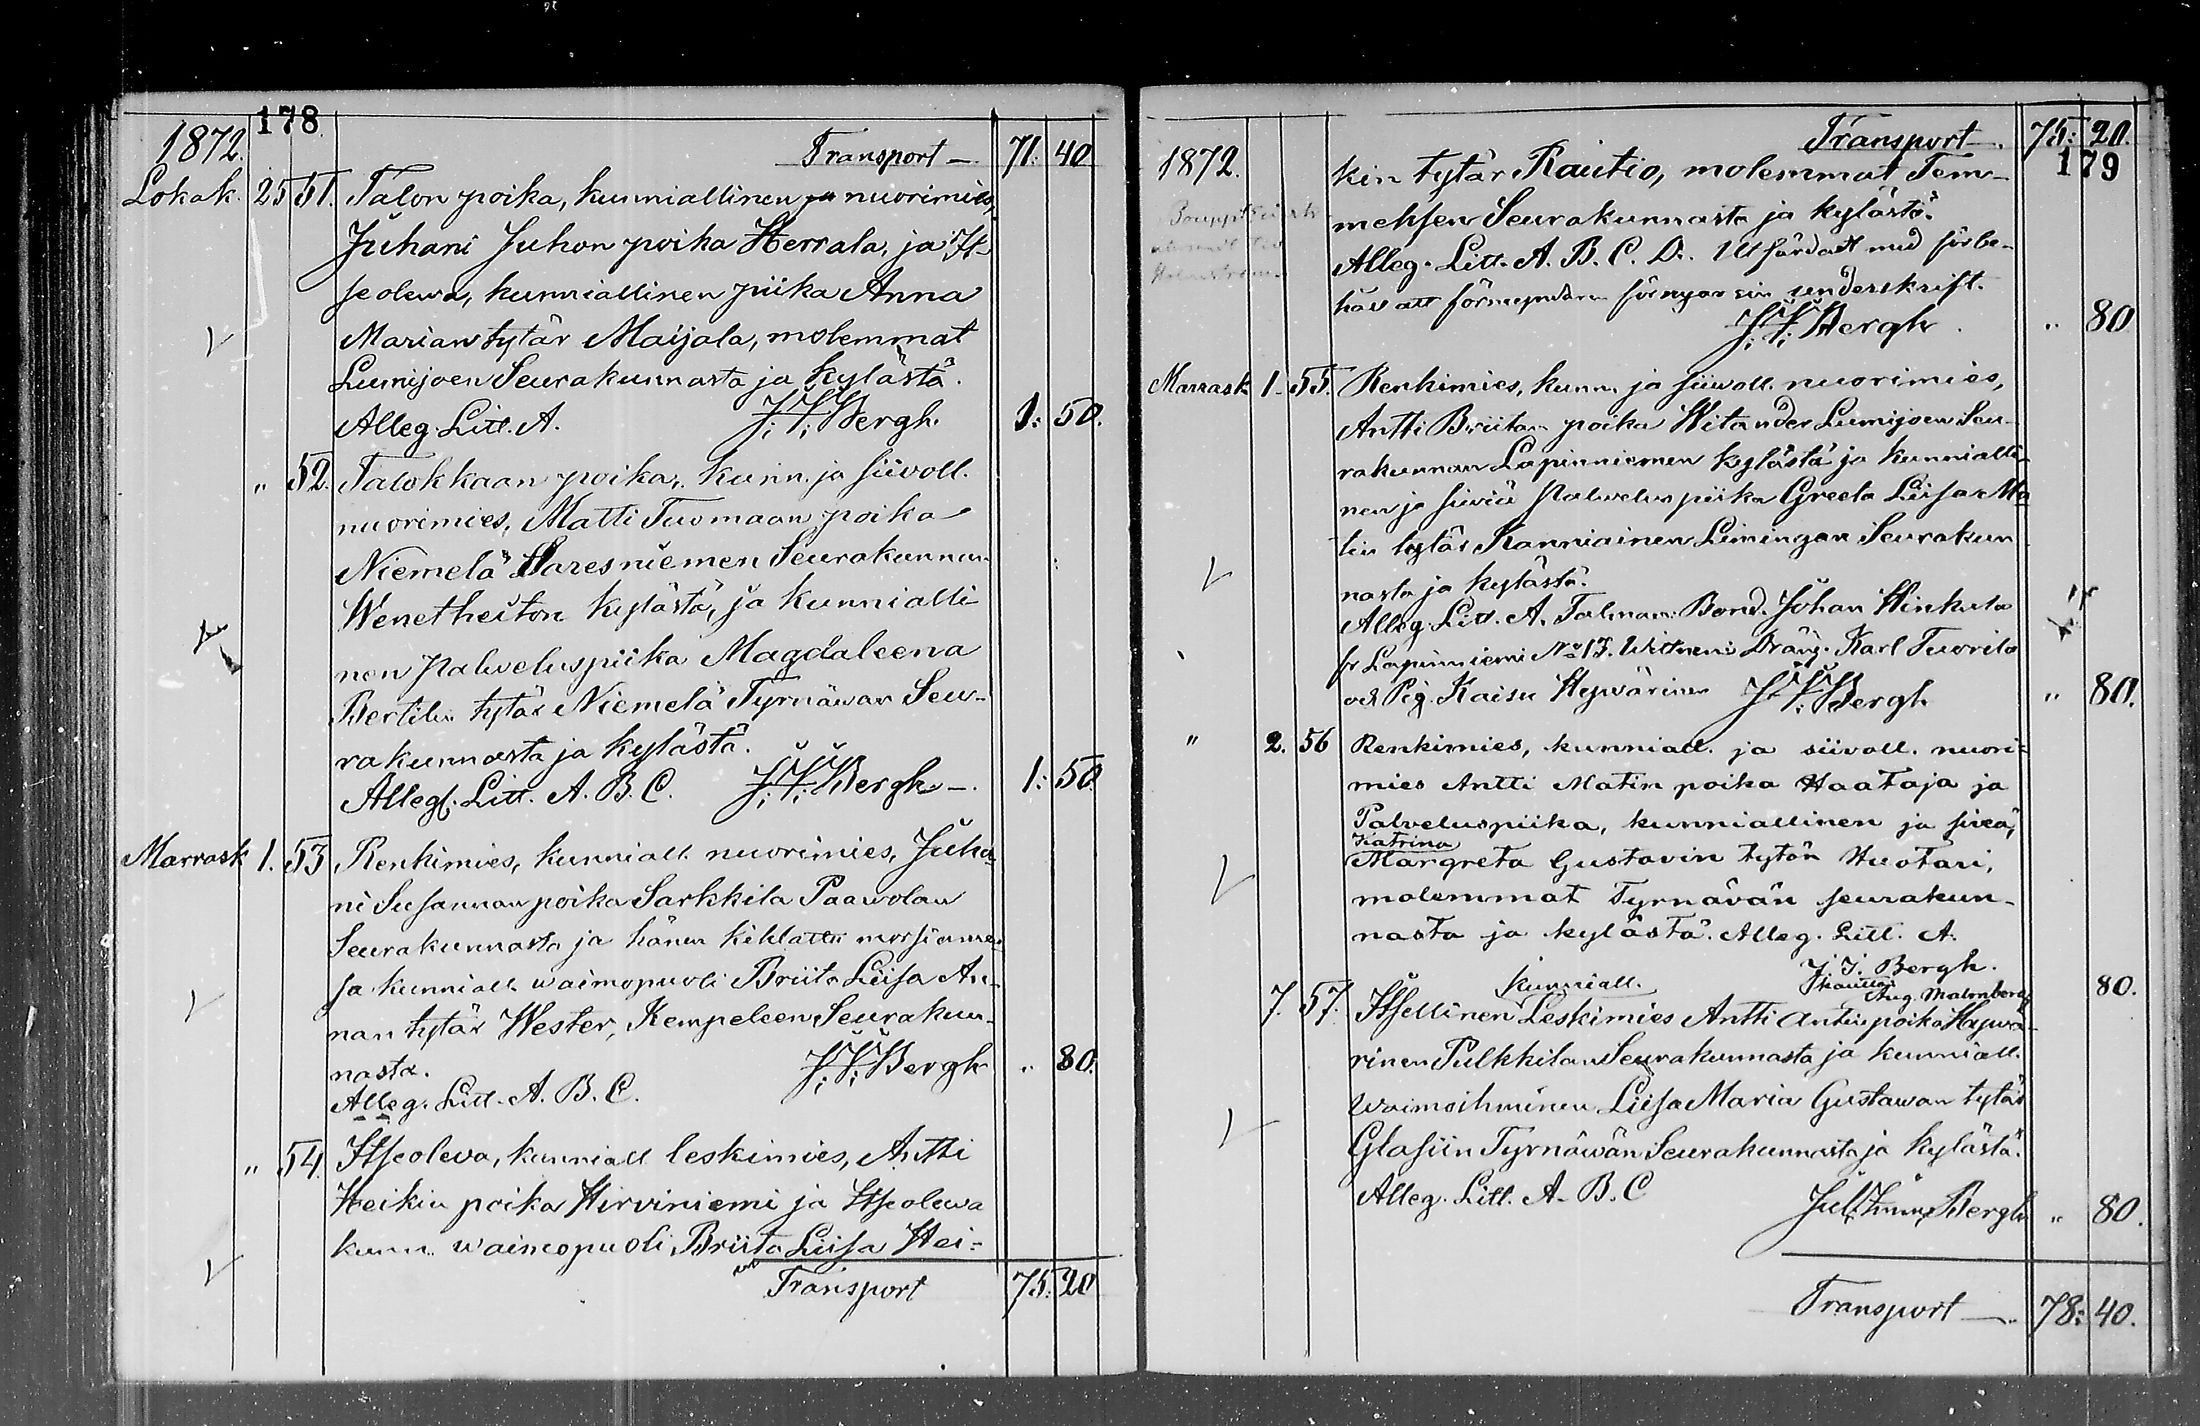 178
1872.
Transport — 71: 40
Lokak. 25 51. Talon poika, kunniallinen ja nuorimies,
Juhani Juhon poika Herrala, ja It-
seolewa, kunniallinen piika Anna
Marian tytär Maijala, molemmat
Lumijoen Seurakunnasta ja kylästä.
Alleg. Litt. A. J. J. Bergh. 1: 50.
" 52. Talokkaan poika, kunn. ja siivoll.
nuorimies, Matti Tuomaan poika
Niemelä Saresniemen Seurakunnan
Wenetheiton kylästä, ja kunnialli
nen palveluspiika Magdaleena
Bertilin tytär Niemelä Tyrnäwän Seu-
rakunnasta ja kylästä.
Alleg. Litt. A. B. C. J. J. Bergh —. 1: 50.
Marrask 1. 53 Renkimies, kunniall. nuorimies, Juha
ni Susannan poika Sarkkila Paawolan
Seurakunnasta ja hänen kihlattu morsiame
sa kunniall waimopuoli Briita Liisa An-
nan tytär Wester, Kempeleen Seurakun-
nasta. J. J. Bergh " 80.
Alleg. Litt. A. B. C.
" 54. Itseoleva, kunniall leskimies, Antti
Heikin poika Hirviniemi ja Itseolewa
kunn. waimopuoli, Briita Liisa Hei-
Transport 75: 20
Transport —. 75: 20.
179
1872.
kin tytär Rautio, molemmat Tem-
meksen Seurakunnasta ja kylästä.
Alleg. Litt. A. B. C. D. Utfärdadt med förbe-
håll att förmyndaren förnyar sin underskrift.
J. J. Bergh. " 80
Marrask 1. 55. Renkimies, kunn. ja siiwoll. nuorimies,
Antti Briitan poika Witander Lumijoen Seu-
rakunnan Lapinniemen kylästä ja kunnialli-
nen ja siwiä Palvelus piika Greeta Liisa Ma
tin tytär Kanniainen Limingan Seurakun
nasta ja kylästä.
Alleg. Litt. A. Talman: Bond. Johan Hinkula
fr Lapinniemi No 13. Wittnen: Dräng. Karl Tuorila
och Pig. Kaisu Hywärinen J. J. Bergh " 80.
" 2. 56 Renkimies, kunniall. ja siivoll. nuori-
mies Antti Matin poika Haataja ja
Palveluspiika, kunniallinen ja siveä,
Katrina
Margreta Gustavin tytön Huotari,
molemmat Tyrnävän seurakun-
nasta ja kylästä. Alleg. Litt. A.
J. J. Bergh.
Aug. Malmberg 80.
kunniall.
7. 57. Itsellinen Leskimies Antti Antin poika Hywä-
rinen Pulkkilan Seurakunnasta ja kunniall.
Waimoihminen Liisa Maria Gustawan tytär
Glasiin Tyrnäwän Seurakunnasta ja kylästä.
Alleg. Litt. A. B. C Bergh " 80.
Transport —. 78: 40.